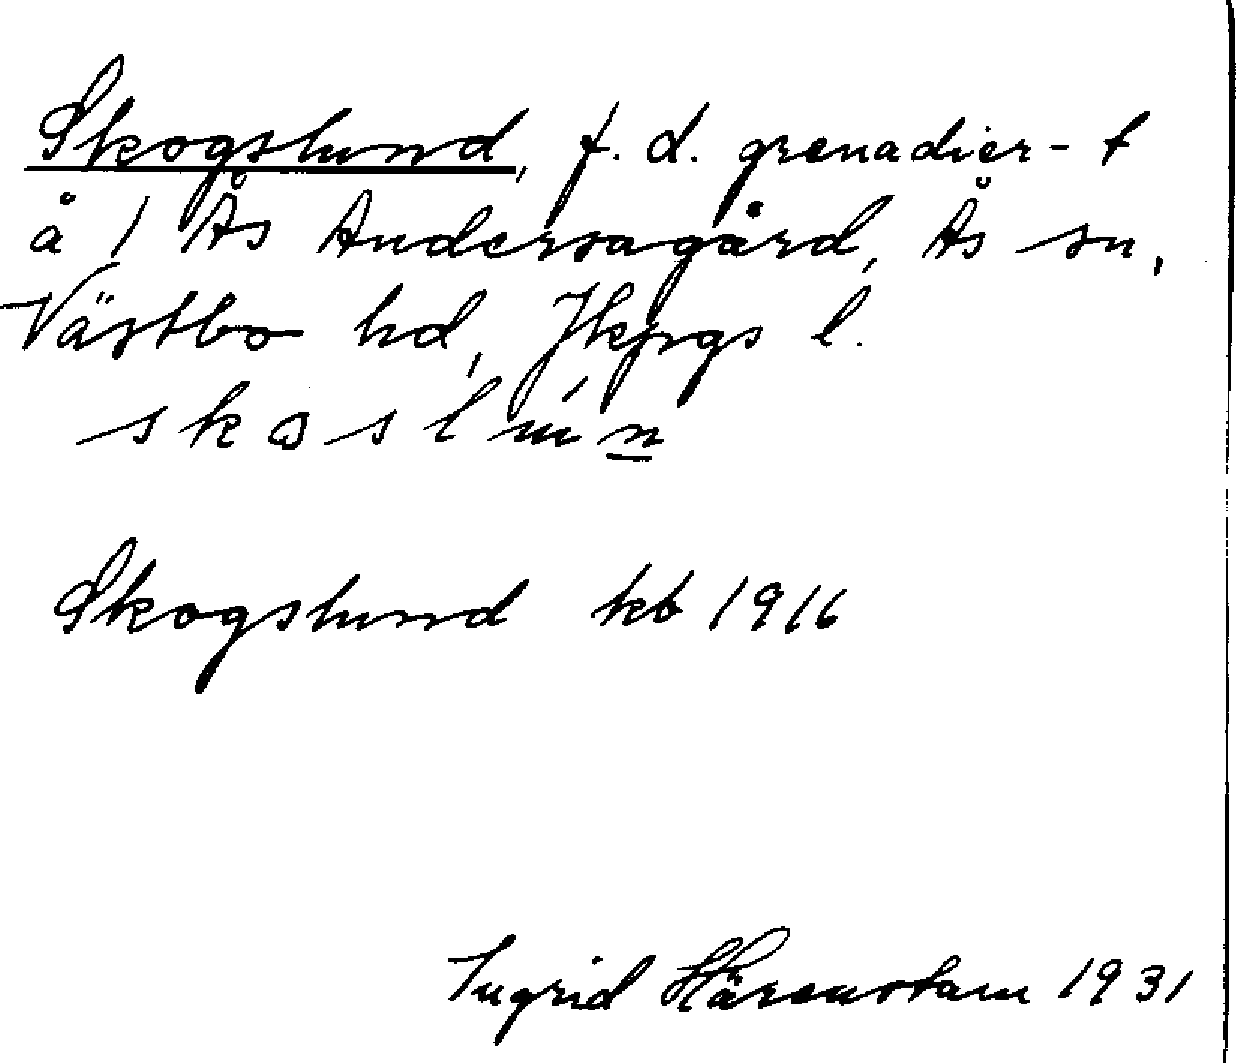 Skogslund, f. d. grenadier-t
å 1 Ås Andersagård, Ås sn,
Västbo hd, Jkpgs l.
Skogslund kb 1916
Ingrid Härenstam 1931